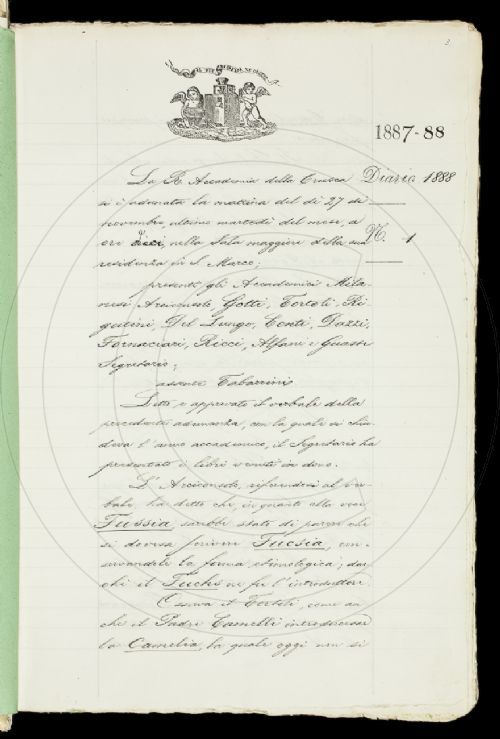 2.
1887-88
La R. Accademia della Crusca
Diario 1888
si è adunata la mattina del dì 27 di
novembre, ultimo martedì del mese, a
N. 1
ore dieci, nella Sala maggiore della sua
residenza in S. Marco;
presenti gli Accademici Mila-
nesi Arciconsolo, Gotti, Tortoli, Ri-
gutini, Del Lungo, Conti, Dazzi,
Fornaciari, Ricci, Alfani e Guasti
Segretario;
assente Tabarrini
Letto e approvato il verbale della
precedente adunanza, con la quale si chiu-
deva l'anno accademico, il Segretario ha
presentato i libri venuti in dono.
L'Arciconsolo, riferendosi al ver-
bale, ha detto che, in quanto alla voce
Fussia, sarebbe stato di parere che
si dovesse scrivere Fucsia, con-
servandole la forma etimologica; dac-
chè il Fuchs ne fu l'introduttore.
Osserva il Tortoli, come an-
che il Padre Camelli introducesse
la Camelia, la quale oggi non si